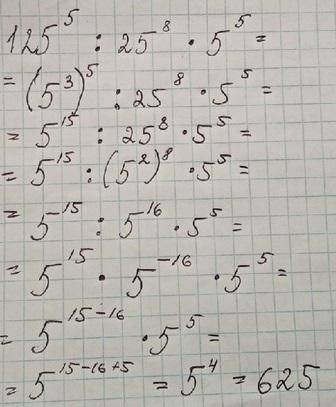 125⁵ : 25⁸ · 5⁵ =
= (5³)⁵ : 25⁸ · 5⁵ =
= 5¹⁵ : 25⁸ · 5⁵ =
= 5¹⁵ : (5²)⁸ · 5⁵ =
= 5¹⁵ : 5¹⁶ · 5⁵ =
= 5¹⁵ · 5⁻¹⁶ · 5⁵ =
= 5¹⁵⁻¹⁶ · 5⁵ =
= 5¹⁵⁻¹⁶⁺⁵ = 5⁴ = 625